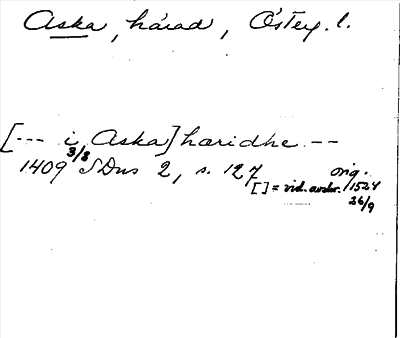 Aska, härad, Östg. l.
[--- i Aska] häridhe --
1409 3/8 SDns 2, s. 127 orig.
[ ] = vid. avskr. 1524
26/9